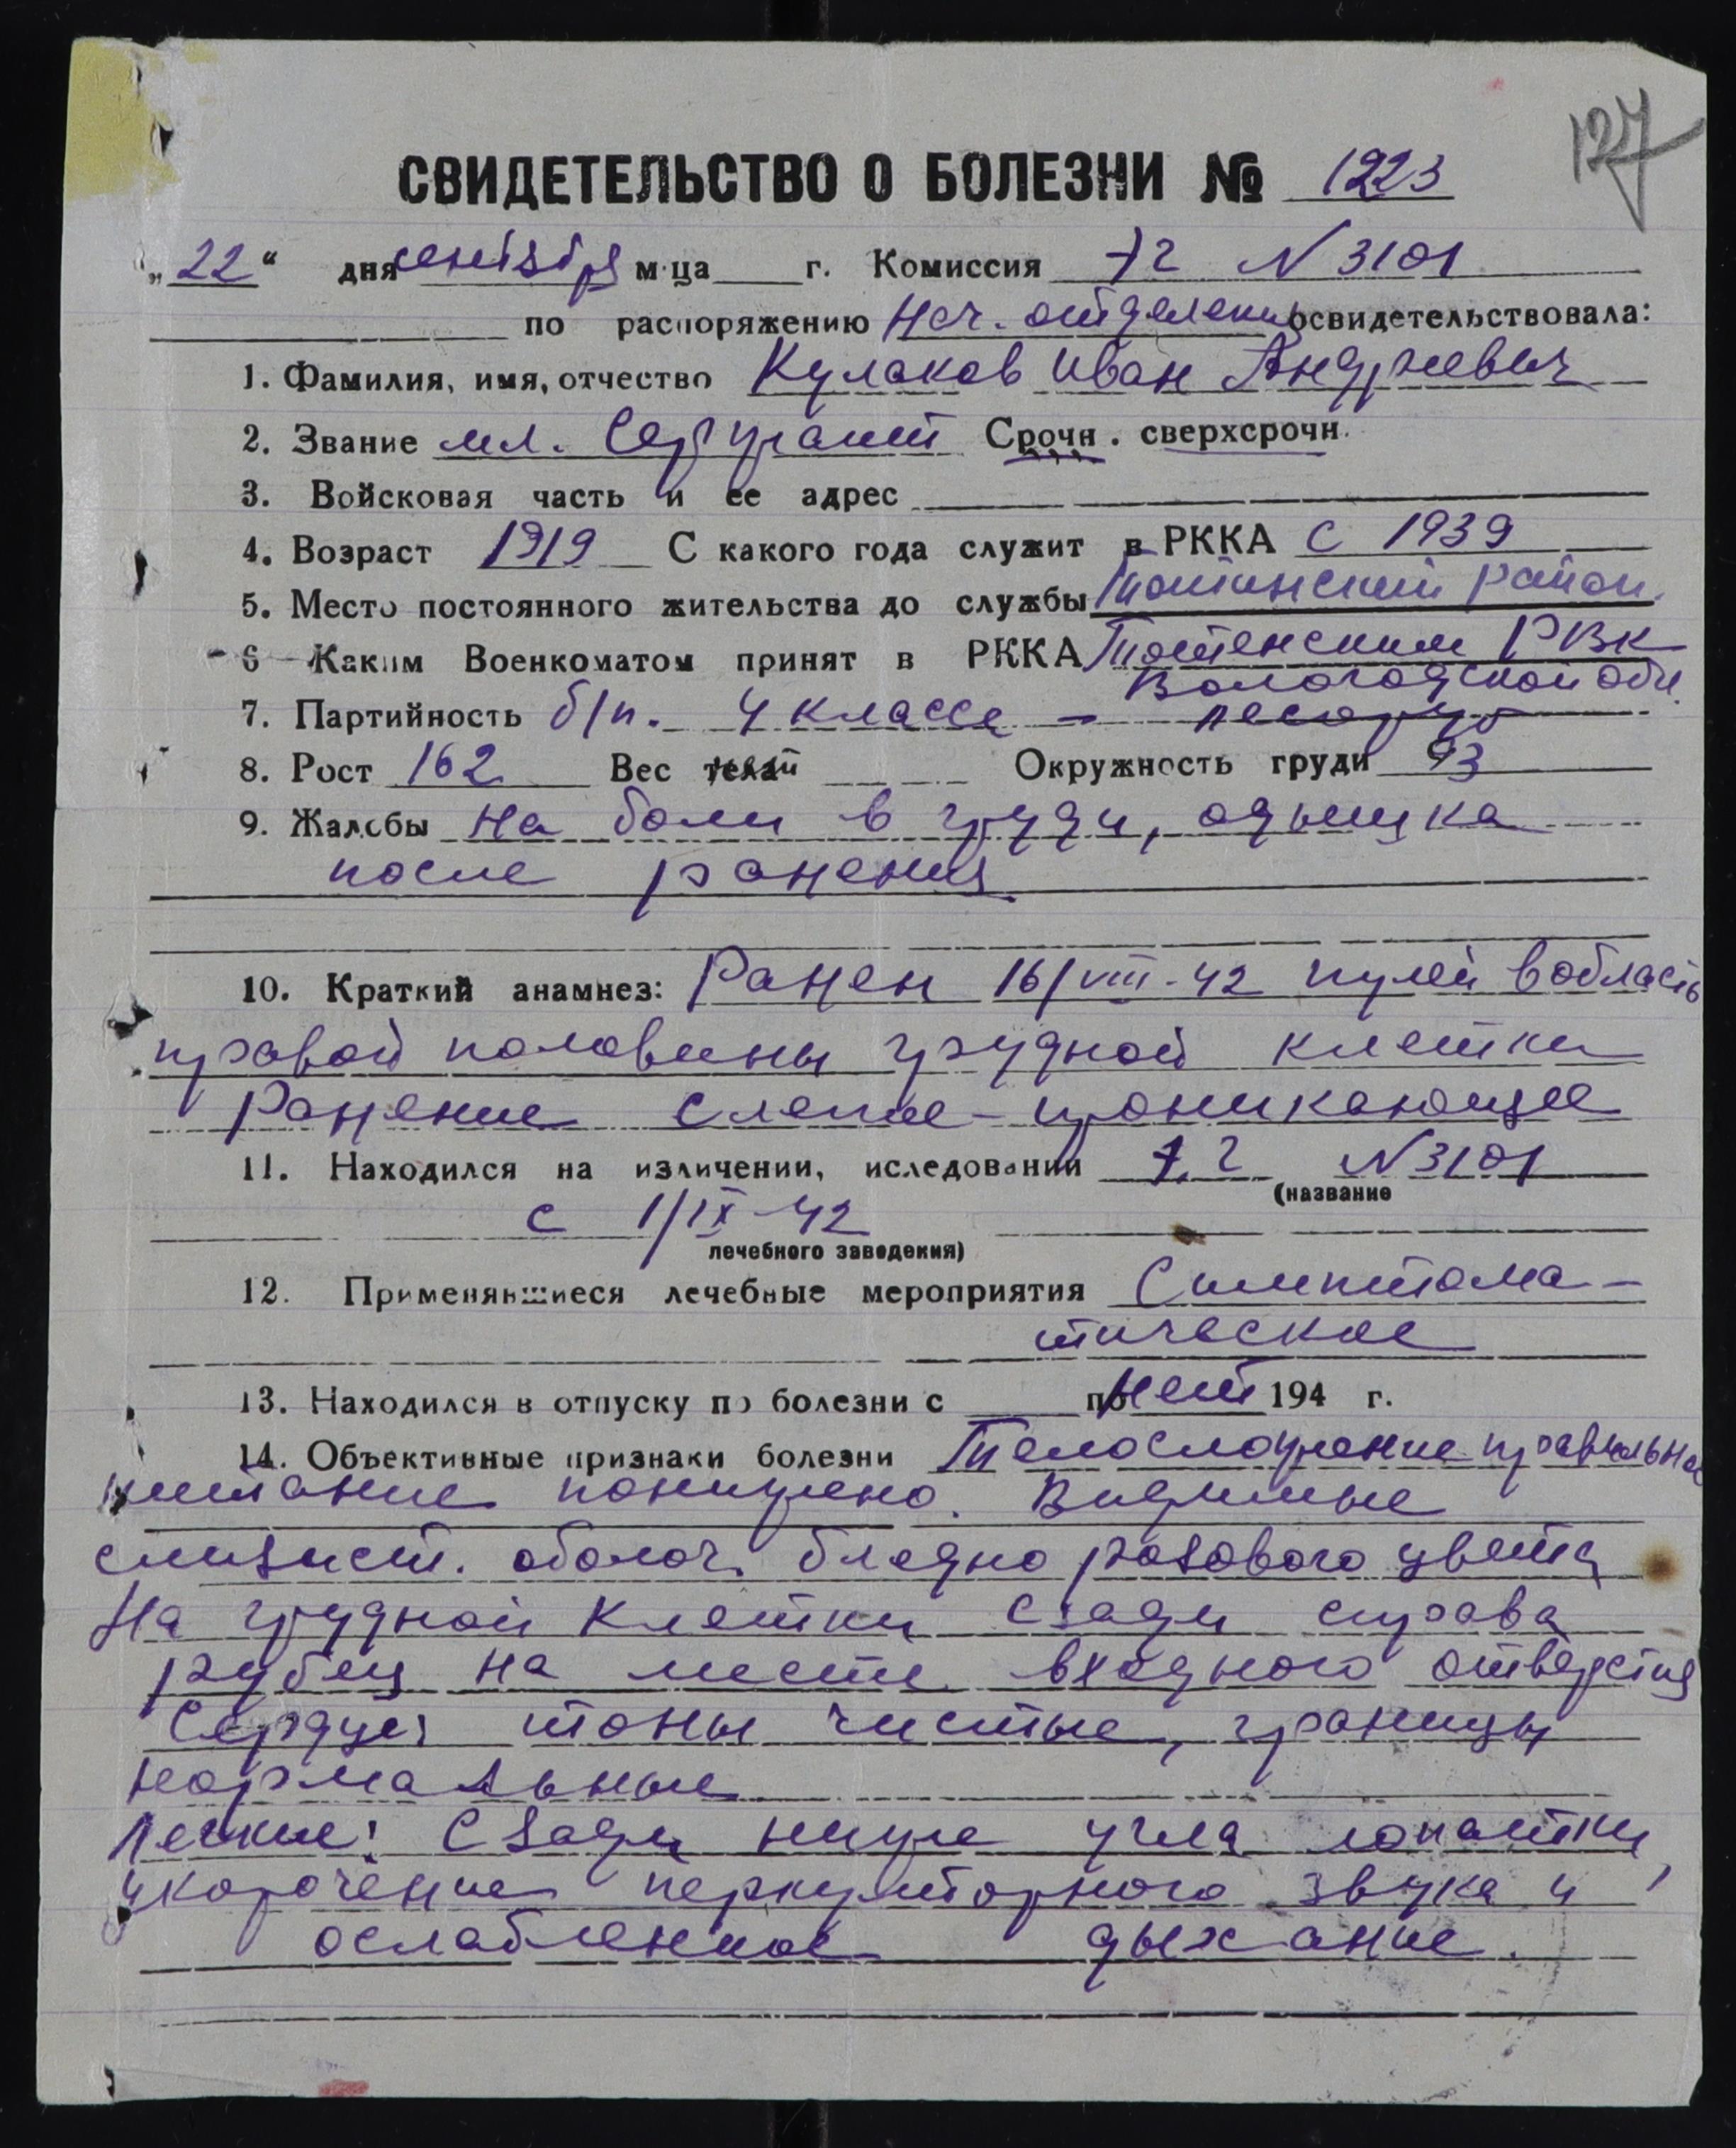 127
СВИДЕТЕЛЬСТВО О БОЛЕЗНИ № 1223
„22“ дня сентября м-ца г. Комиссия г № 3101
по распоряжению Нач. отделения освидетельствовала:
1. Фамилия, имя, отчество Кулаков Иван Андреевич
2. Звание мл. Сержант Срочн. сверхсрочн.
3. Войсковая часть и ее адрес
4. Возраст 1919 С какого года служит в РККА с 1939
5. Место постоянного жительства до службы Тотинский район.
6 Каким Военкоматом принят в РККА Тотенским РВК
Вологодской обл.
7. Партийность б/п. 4 класса – лесоруб
8. Рост 162 Вес тела нет Окружность груди 93
9. Жалобы на боли в груди, одышка
после ранения
10. Краткий анамнез: Ранен 16/VIII-42 пулей в область
правой половины грудной клетки
Ранение слепое – проникающее
11. Находился на изличении, иследовании г № 3101
(название
с 1/IX-42
лечебного заведения)
12. Применявшиеся лечебные мероприятия Симптома-
тическое
13. Находился в отпуску по болезни с по нет 194 г.
14. Объективные признаки болезни Телосложение правильное
питание понижено. Видимые
слизист. оболоч. бледно розового цвета
На грудной клетки сзади справа
рубец на месте входного отверстия
Сердце: тоны чистые, границы
нормальные
Легкие: Сзади ниже угла лопатки,
укорочение перкуторного звука и
ослабленное дыхание.